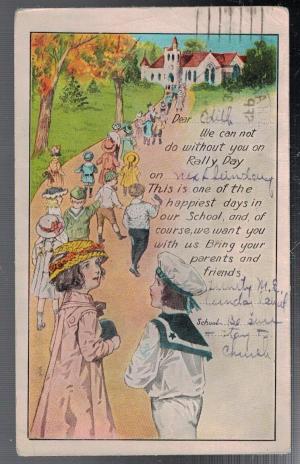 Dear Edith
We can not
do without you on
Rally Day
on next Sunday
This is one of the
happiest days in
our School, and, of
course, we want you
with us. Bring your
parents and
friends.
M. E.
School. Be Sure
Stay
Church